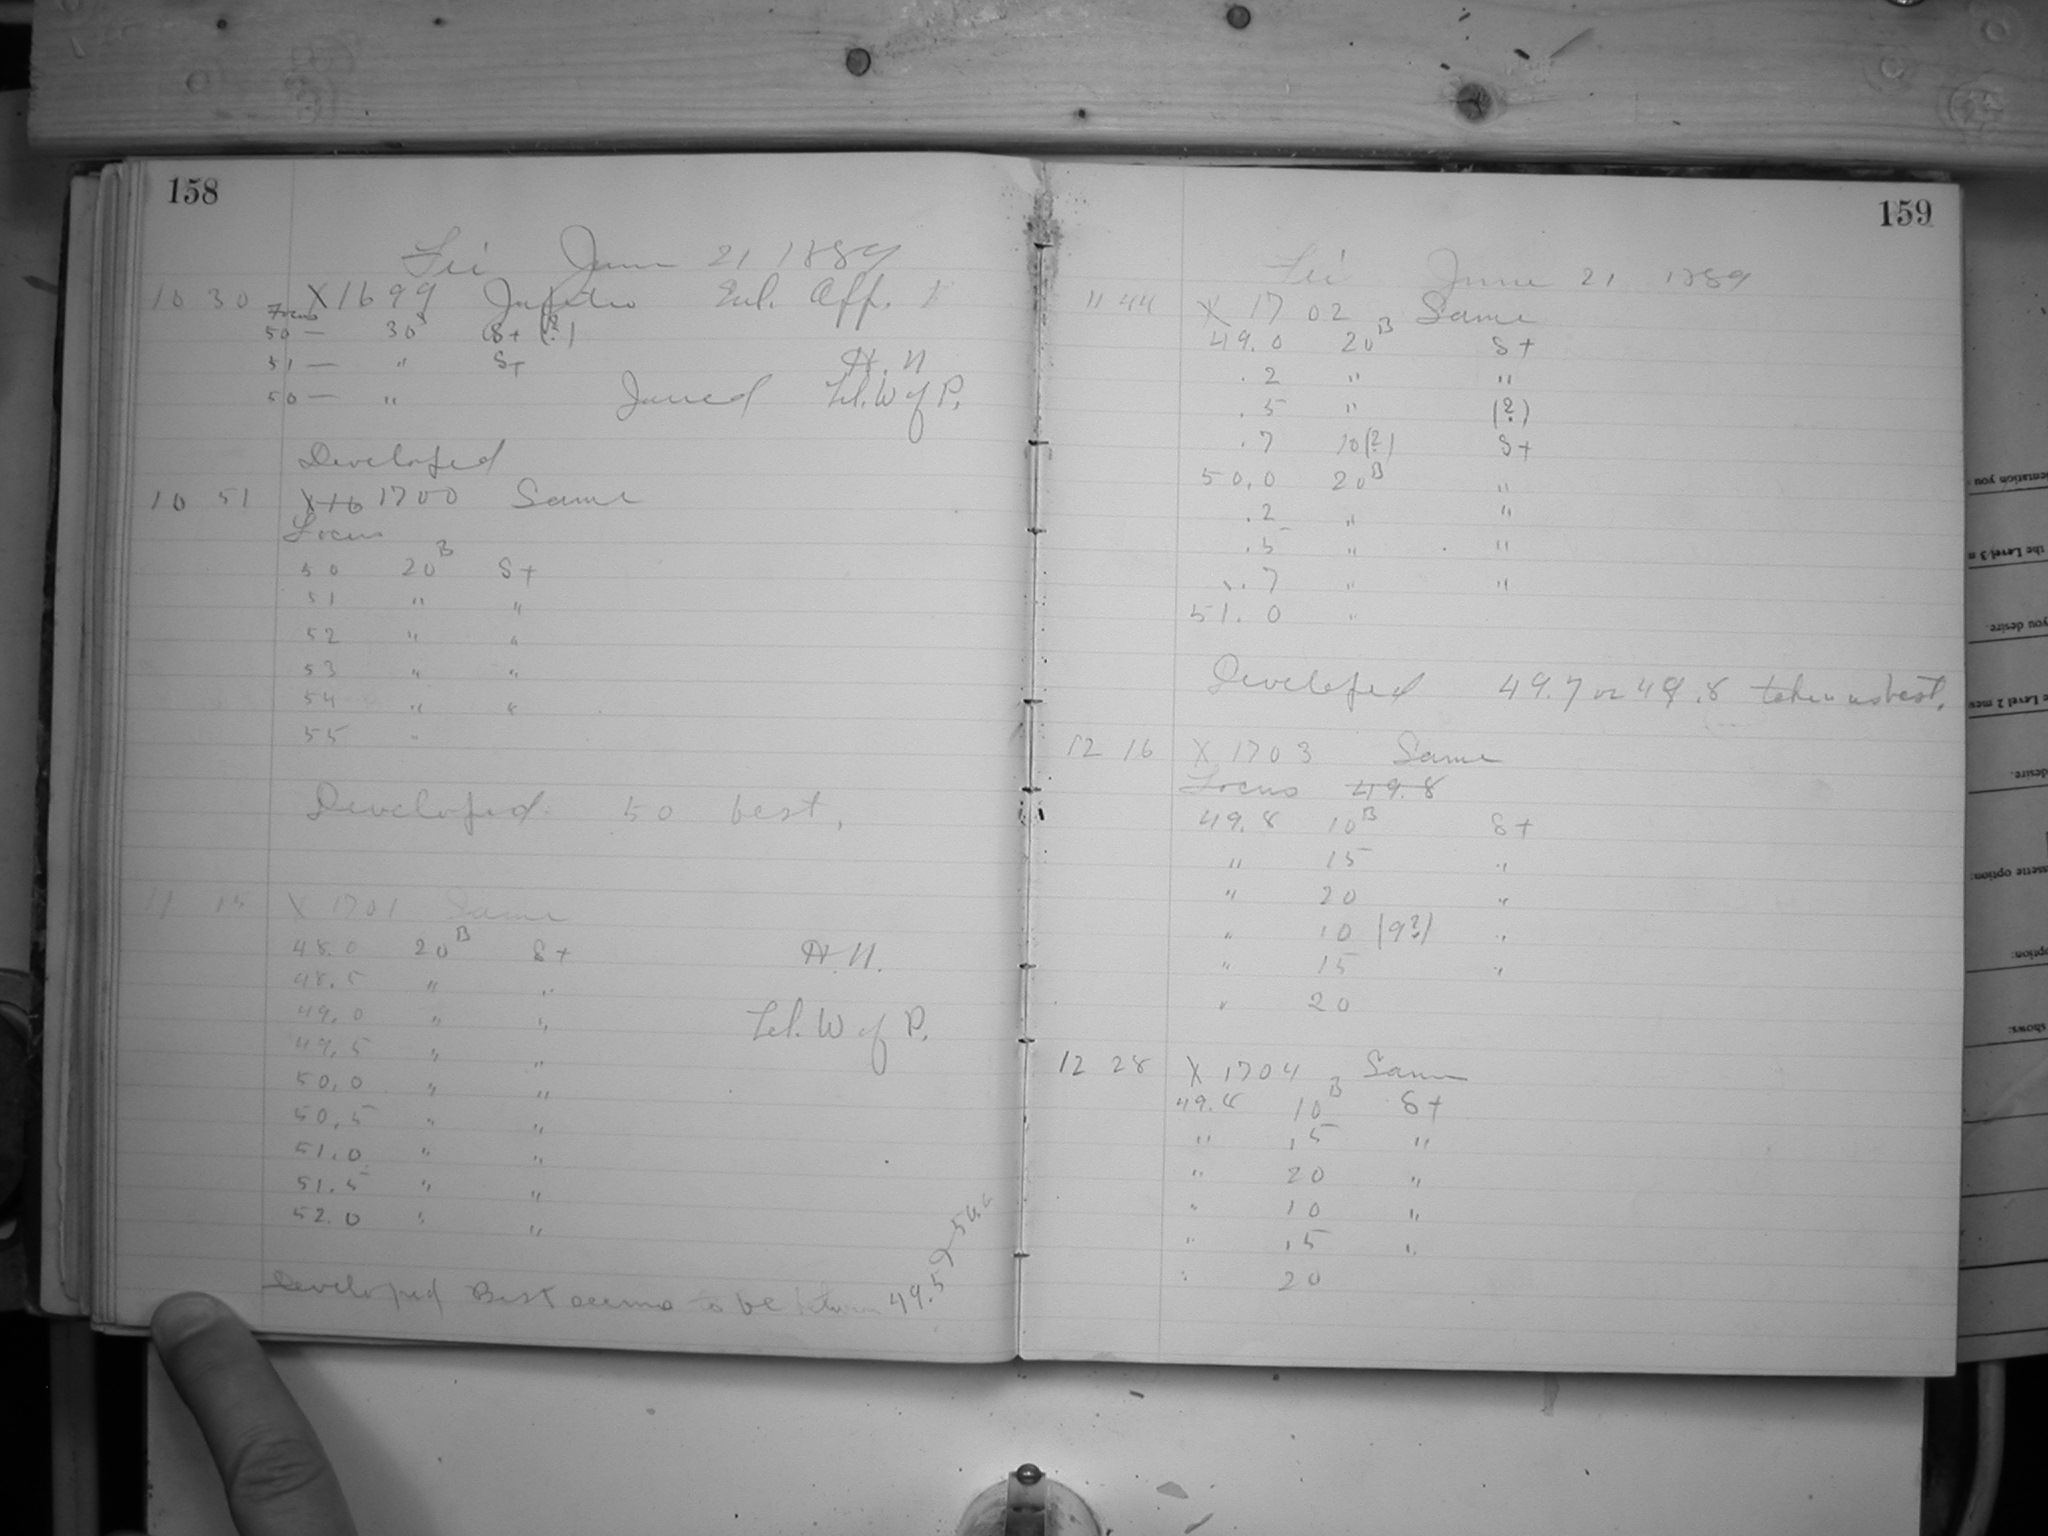 158
Fri June 21 1889
10 30 X1699 Jupiter Enl. App.
Focus
50 — 30ˢ St (?)
51 — " St H. N
50 — " Jarred Tel. W of P.
Developed
10 51 X16 1700 Same
Focus
50 20ᴮ St
51 " "
52 " "
53 " "
54 " "
55 "
Developed 50 best.
11 15 X 1701 Same
48.0 20ᴮ St H.N.
48.5 " "
49.0 " " Tel. W of P.
49.5 " "
50.0 " "
50.5 " "
51.0 " "
51.5 " "
52.0 " "
Developed Best seems to be between 49.5
159
Fri June 21 1889
11 44 X 1702 Same
49.0 20ᴮ St
.2 " "
.5 " (?)
.7 10(?) St
50.0 20ᴮ "
.2 " "
.5 " "
.7 " "
51.0 "
Developed 49.7 or 49.8 taken as best.
12 16 X 1703 Same
Focus 49.8
49.8 10ᴮ St
" 15 "
" 20 "
" 10 (9?) "
" 15 "
" 20
12 28 X 1704 Same
49.8 10ᴮ St
" 15 "
" 20 "
" 10 "
" 15 "
" 20